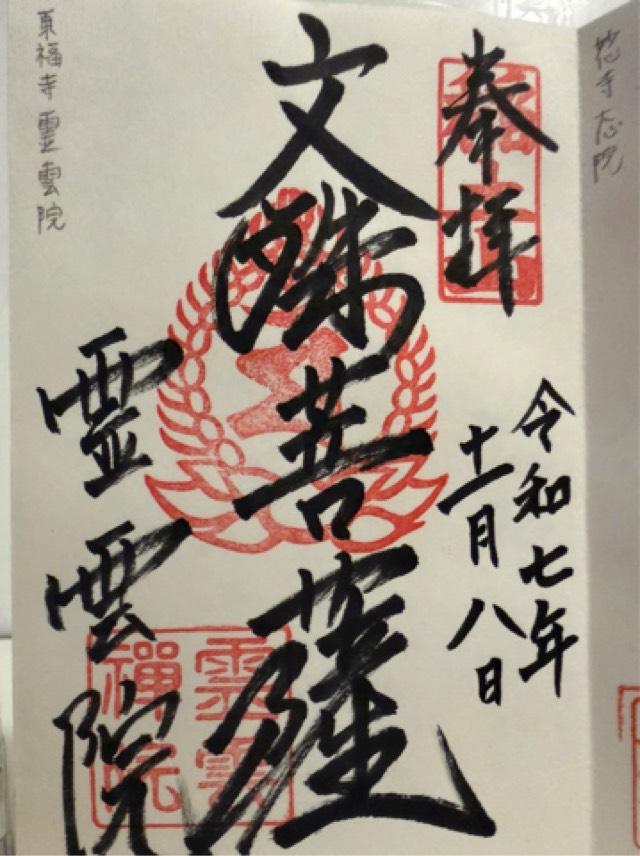 奉拝
令和七年
十一月八日
文殊菩薩
霊雲院
霊雲
禅院
東福寺霊雲院